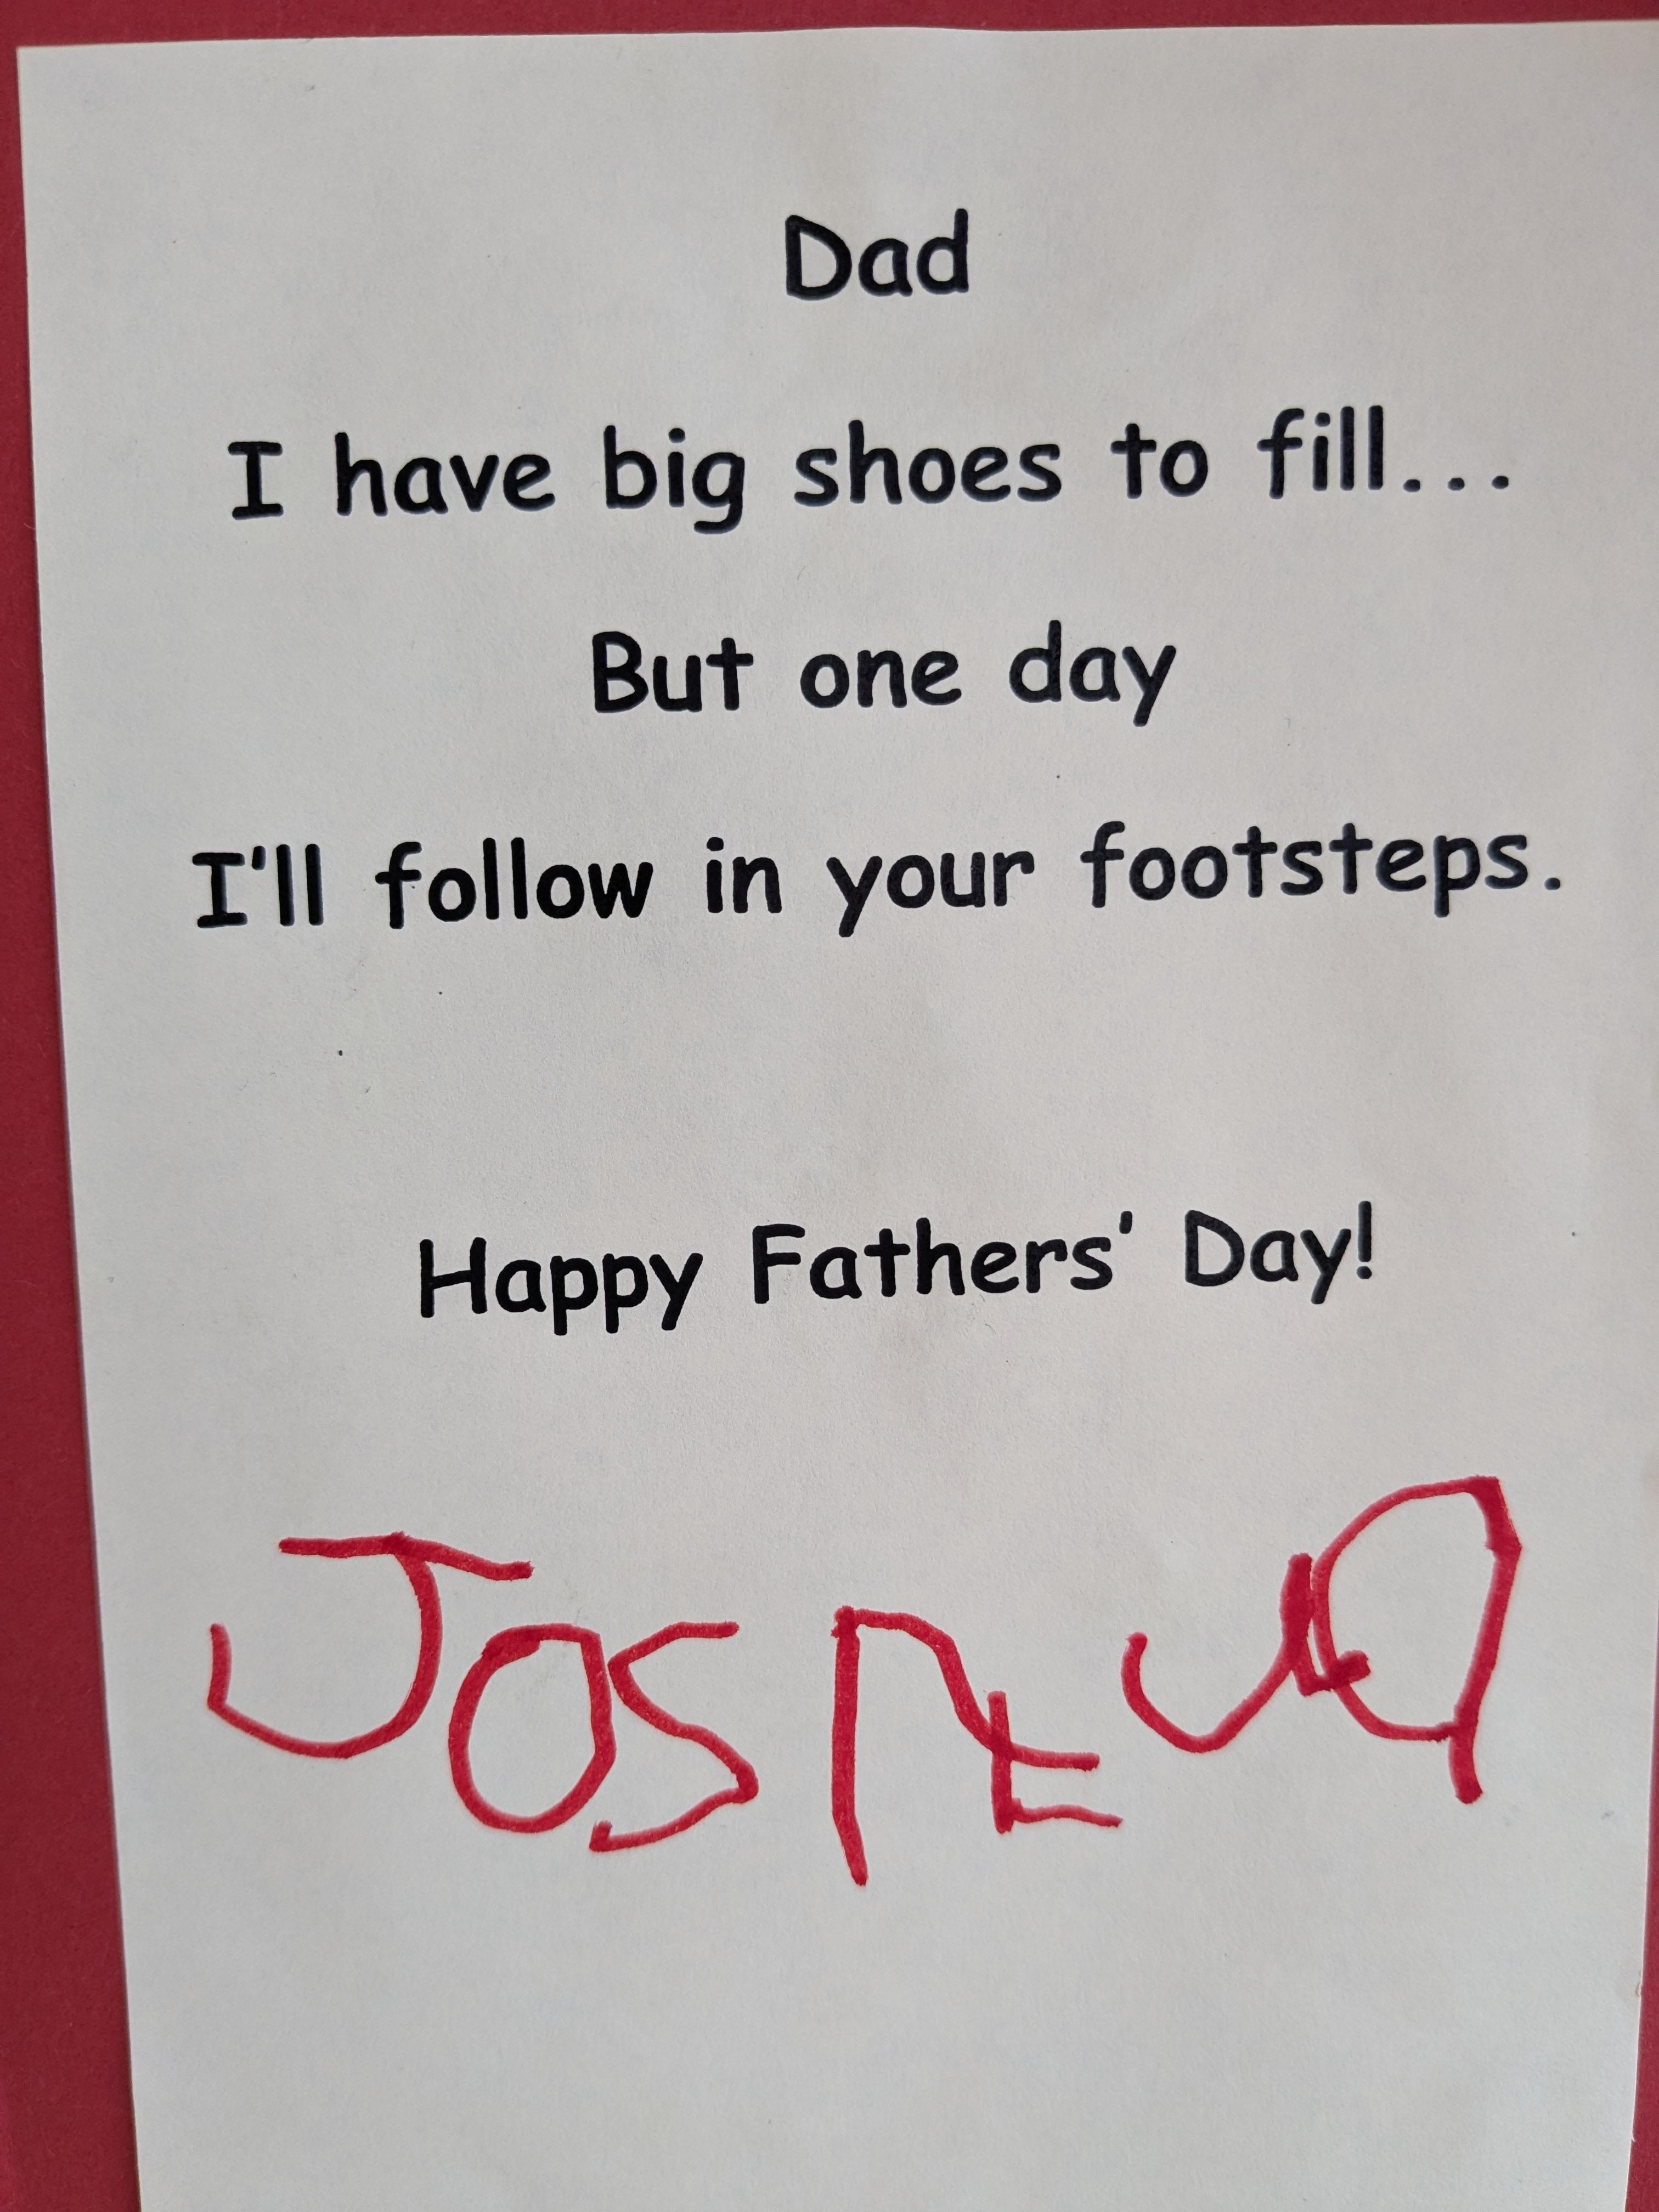 Dad
I have big shoes to fill...
But one day
I'll follow in your footsteps.
Happy Fathers' Day!